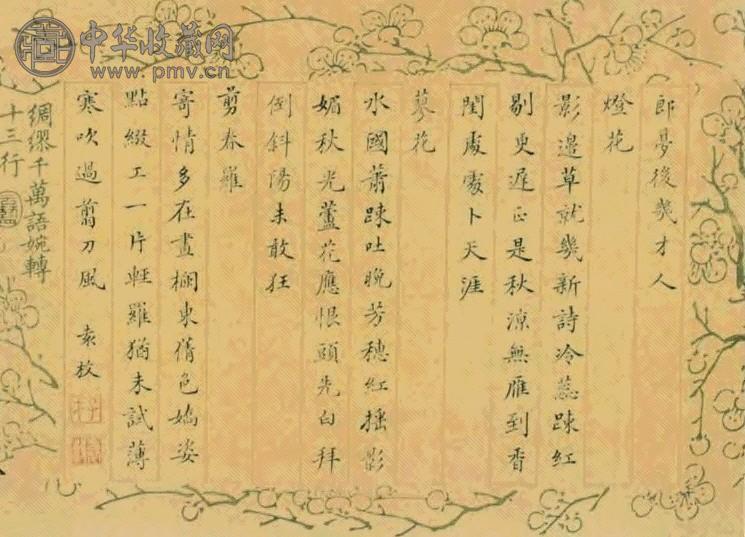 中华收藏网
www.pmv.cn
郎夢後幾才人
燈花
影邉草就幾新詩冷蕊踈紅
剔更遲正是秋凉無雁到香
閨處處卜天涯
蓼花
水國蕭踈吐晚芳穗紅搖影
媚秋光蘆花應恨頭先白拜
倒斜陽未敢狂
剪春羅
寄情多在畫欄東倩色嬌姿
點綴工一片輕羅猶未試薄
寒吹過翦刀風 袁枚
綢繆千萬語婉轉
十三行